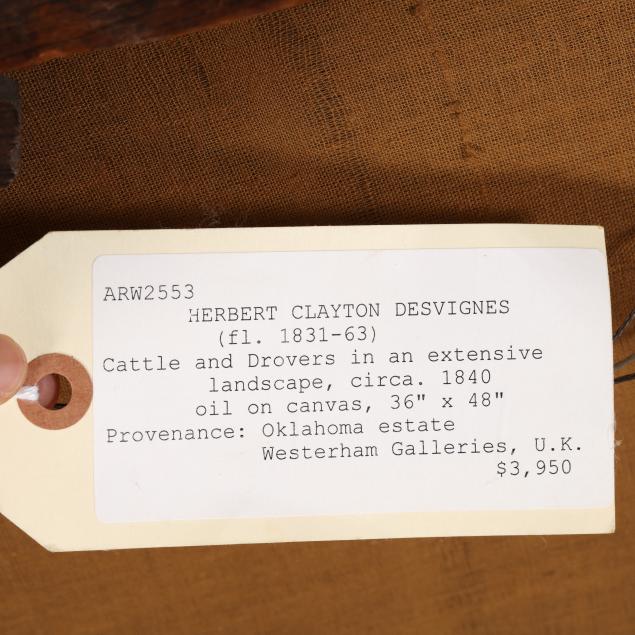 ARW2553
HERBERT CLAYTON DESVIGNES
(fl. 1831-63)
Cattle and Drovers in an extensive
landscape, circa. 1840
oil on canvas, 36" x 48"
Provenance: Oklahoma estate
Westerham Galleries, U.K.
$3,950